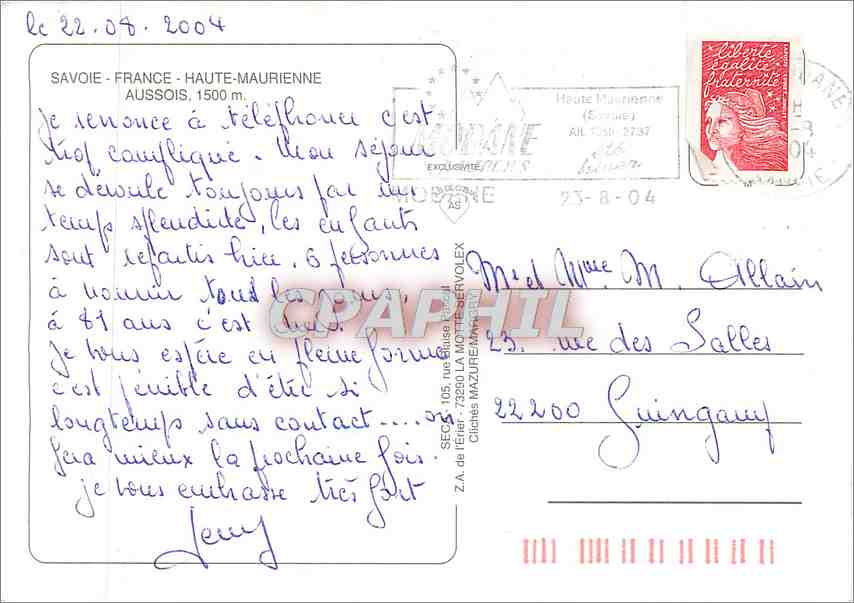 le 22.08.2004
SAVOIE - FRANCE - HAUTE-MAURIENNE
AUSSOIS, 1500 m.
je renonce à téléphoner c'est
trop compliqué. Mon séjour
se déroule toujours par un
temps splendide, les enfants
sont repartis hier. 6 personnes
à nourrir tous les jours,
à 81 ans c'est dur.
je vous espère en pleine forme
c'est pénible d'être si
longtemps sans contact.... on
fera mieux la prochaine fois.
je vous embrasse très fort
Jenny
EXCLUSIVITÉ
SECA, 105, rue Blaise Pascal
Z.A. de l'Erier - 73290 LA MOTTE SERVOLEX
Clichés MAZURE/MARGRY
MODANE
Haute Maurienne
(Savoie)
Alt. 1050-2737
MODANE
23-8-04
liberté
égalité
fraternité
Mr et Mme M. Allain
23. rue des Salles
22200 Guingamp
CPAPHIL